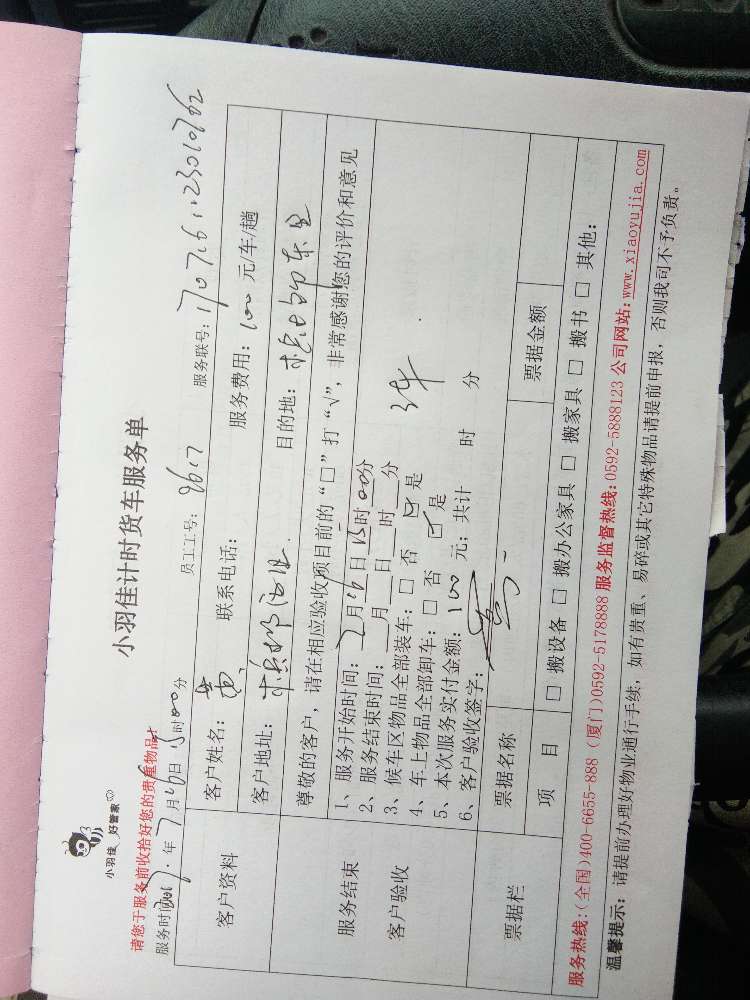 小羽佳 好管家
小羽佳计时货车服务单
请您于服务前收拾好您的贵重物品!
服务时间:2017年7月26日15时00分 员工工号: 服务联号:
客户资料
客户姓名:黄 联系电话: 服务费用:100元/车/趟
客户地址: 目的地:
服务结束
客户验收
尊敬的客户,请在相应验收项目前的“□”打“√”,非常感谢您的评价和意见
1、服务开始时间:7月26日15时00分
2、服务结束时间:__月__日__时__分
3、候车区物品全部装车:□ 否 ☑ 是
4、车上物品全部卸车:□ 否 ☑ 是
5、本次服务实付金额:100元;共计 时 分
6、客户验收签字:
票据栏
票据名称 票据金额
项 目 □ 搬设备 □ 搬办公家具 □ 搬家具 □ 搬书 □ 其他:
服务热线:(全国)400-6655-888 (厦门)0592-5178888 服务监督热线:0592-5888123 公司网站:www.xiaoyujia.com
温馨提示:请提前办理好物业通行手续,如有贵重、易碎或其它特殊物品请提前申报,否则我司不予负责。